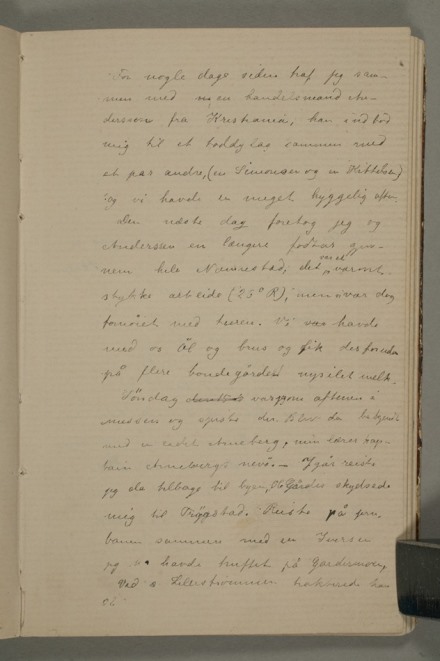 For nogle dage siden traf jeg sam-
men med en handelsmand An-
dersen fra Kristiania, han indbød
mig til et toddyglas sammen med
et par andre, (en Simonsen og en Kittelsen)
og vi havde en meget hyggelig aften.
Den næste dag foretog jeg og
Andersen en længere fodtur gjen-
nem hele Nannestad; det var et varmt
stykke arbeide (25° R), men var dog
fornøiet med turen. Vi havde
med os Öl og brus og fik desforuden
på flere bondegårder nysilet melk.
Söndag var aftenen i
messen og
med en kadet Anneberg, min
Annebergs nevö. – Igår reiste
jeg da tilbage til byen, skydsede
mig til Trøgstad. Reiste på jern-
banen sammen med en Iversen
jeg havde truffet på Gardermoen,
Ved Lillestrømmen han